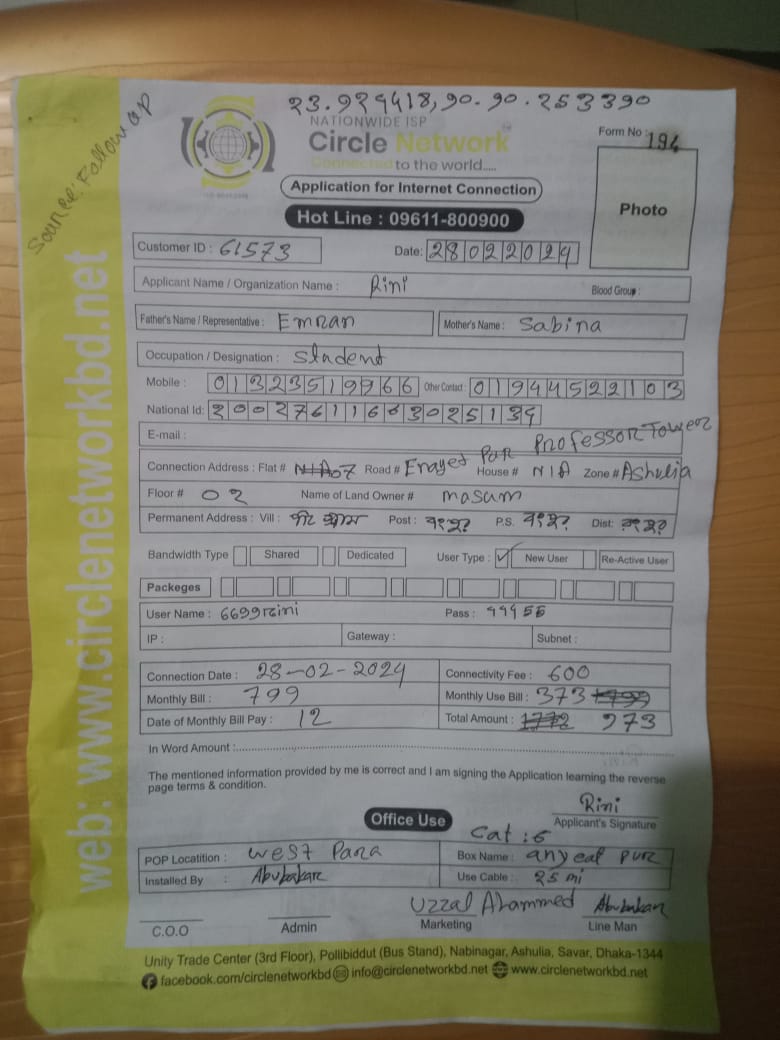 23.929418,90.90.253390
Source: Follow up
NATIONWIDE ISP
Circle Network
Connected to the world.....
Form No : 194
Application for Internet Connection
Photo
Hot Line : 09611-800900
Customer ID : 61573 Date: 28022024
Applicant Name / Organization Name : Rini Blood Group :
Father's Name / Representative : Emran Mother's Name : Sabina
Occupation / Designation : Student
Mobile : Other Contact : 01944522103
National Id:
E-mail : Professor Tower
Connection Address : Flat # 07 Road # Enayet Pur House # N/A Zone # Ashulia
Floor # 02 Name of Land Owner # masum
Permanent Address : Vill : Post : P.S. Dist:
Bandwidth Type Shared Dedicated User Type : New User Re-Active User
Packeges
User Name : 6699rini Pass :
IP : Gateway : Subnet :
Connection Date : 28-02-2024 Connectivity Fee : 600
Monthly Bill : 799 Monthly Use Bill : 373
Date of Monthly Bill Pay : 12 Total Amount : 973
In Word Amount :
The mentioned information provided by me is correct and I am signing the Application learning the reverse
page terms & condition.
Rini
Applicant's Signature
Office Use
Cat : 6
POP Locatition : West Para Box Name : anyeat pur
Installed By : Abubakar Use Cable : 25 mi
Uzzal Ahammed Abubakar
C.O.O Admin Marketing Line Man
Unity Trade Center (3rd Floor), Pollibiddut (Bus Stand), Nabinagar, Ashulia, Savar, Dhaka-1344
facebook.com/circlenetworkbd info@circlenetworkbd.net www.circlenetworkbd.net
web: www.circlenetworkbd.net